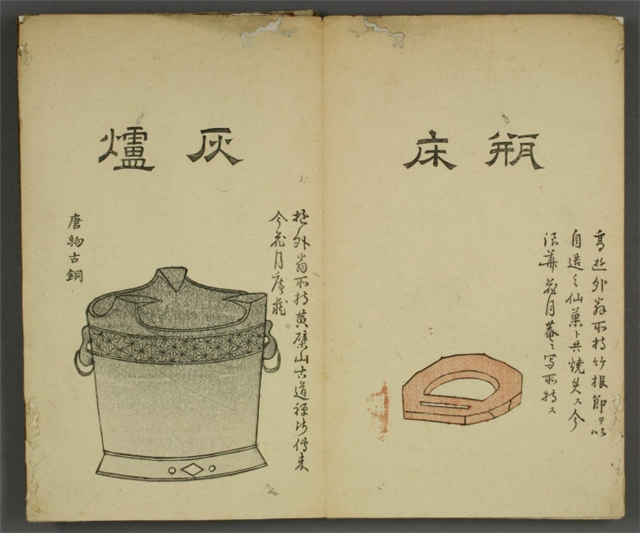 瓶床
高遊外翁所持竹根節ヲ以
自造之仙菓ト共焼失ス今
浪華花月菴ニ写所持ス
灰爐
遊外翁所持黄檗山古道禅師傳来
今花月庵蔵
唐物古銅